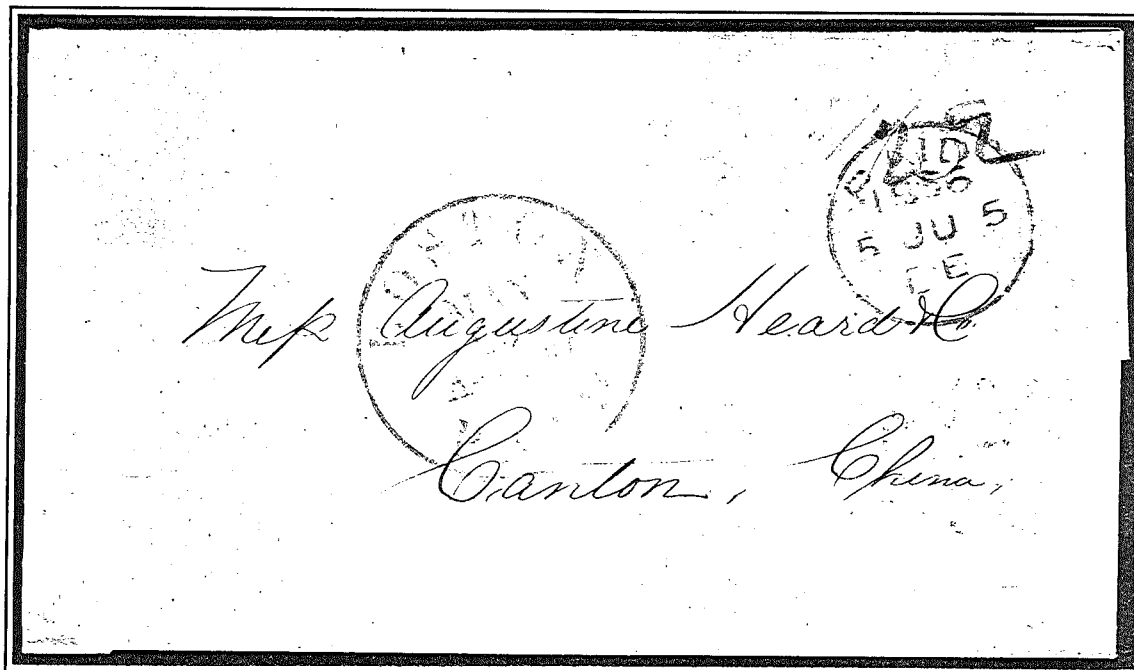 PAID
5 JU 5
Mess Augustine Heard & Co
Canton, China,